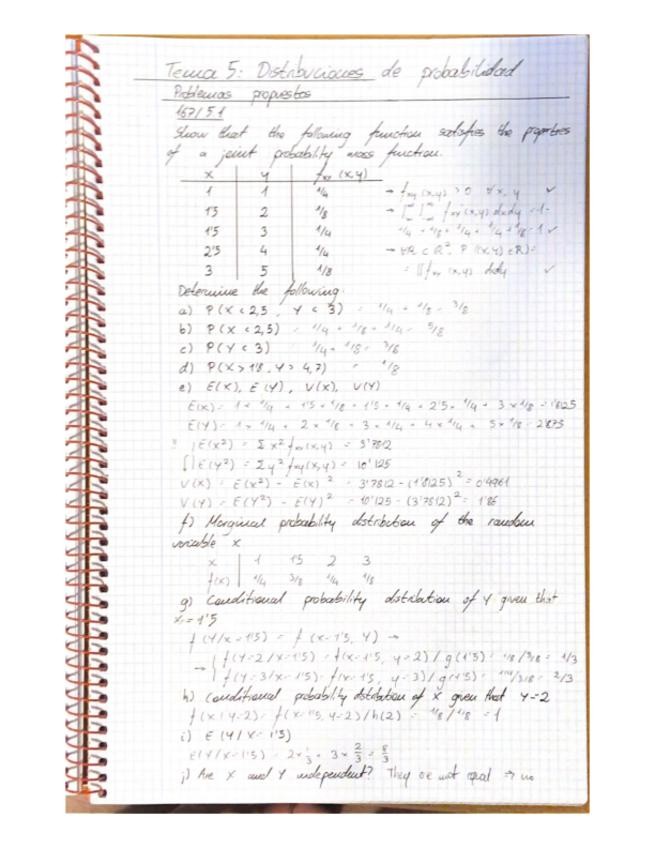 Tema 5: Distribuciones de probabilidad
Problemas propuestos
167/5.1
Show that the following function satisfies the properties
of a joint probability mass function.
x | y | fxy (x,y)
1 | 1 | 1/4 → fxy (x,y) > 0 ∀x, y ✓
1'5 | 2 | 1/8 → ∫∫ fxy (x,y) dxdy = 1
1'5 | 3 | 1/4 1/4 + 1/8 + 1/4 + 1/4 + 1/8 = 1 ✓
2'5 | 4 | 1/4 → ∀R ⊂ R², P ((x,y) ∈ R) =
3 | 5 | 1/8 = ∬ fxy (x,y) dxdy ✓
Determine the following:
a) P(X < 2,5, Y < 3) = 1/4 + 1/8 = 3/8
b) P(X < 2,5) = 1/4 + 1/8 + 1/4 = 5/8
c) P(Y < 3) = 1/4 + 1/8 = 3/8
d) P(X > 1'8, Y > 4,7) = 1/8
e) E(X), E(Y), V(X), V(Y)
E(X) = 1 × 1/4 + 1'5 × 1/8 + 1'5 × 1/4 + 2'5 × 1/4 + 3 × 1/8 = 1'8125
E(Y) = 1 × 1/4 + 2 × 1/8 + 3 × 1/4 + 4 × 1/4 + 5 × 1/8 = 2'875
E(X²) = Σ x² fxy(x,y) = 3'7812
E(Y²) = Σ y² fxy(x,y) = 10'125
V(X) = E(X²) - E(X)² = 3'7812 - (1'8125)² = 0'4961
V(Y) = E(Y²) - E(Y)² = 10'125 - (3'7812)² = 1'86
f) Marginal probability distribution of the random
variable X
x | 1 1'5 2 3
f(x) | 1/4 3/8 1/4 1/8
g) Conditional probability distribution of Y given that
X = 1'5
f (Y/x=1'5) = f (x=1'5, Y) →
→ { f(Y=2/x=1'5) = f(x=1'5, y=2)/g(1'5) = 1/8 / 3/8 = 1/3
f(Y=3/x=1'5) = f(x=1'5, y=3)/g(1'5) = 1/4 / 3/8 = 2/3
h) Conditional probability distribution of X given that Y=2
f(x/y=2) = f(x=1'5, y=2)/h(2) = 1/8 / 1/8 = 1
i) E(Y/X=1'5)
E(Y/X=1'5) = 2 × 1/3 + 3 × 2/3 = 8/3
j) Are X and Y independent? They are not equal ⇒ no